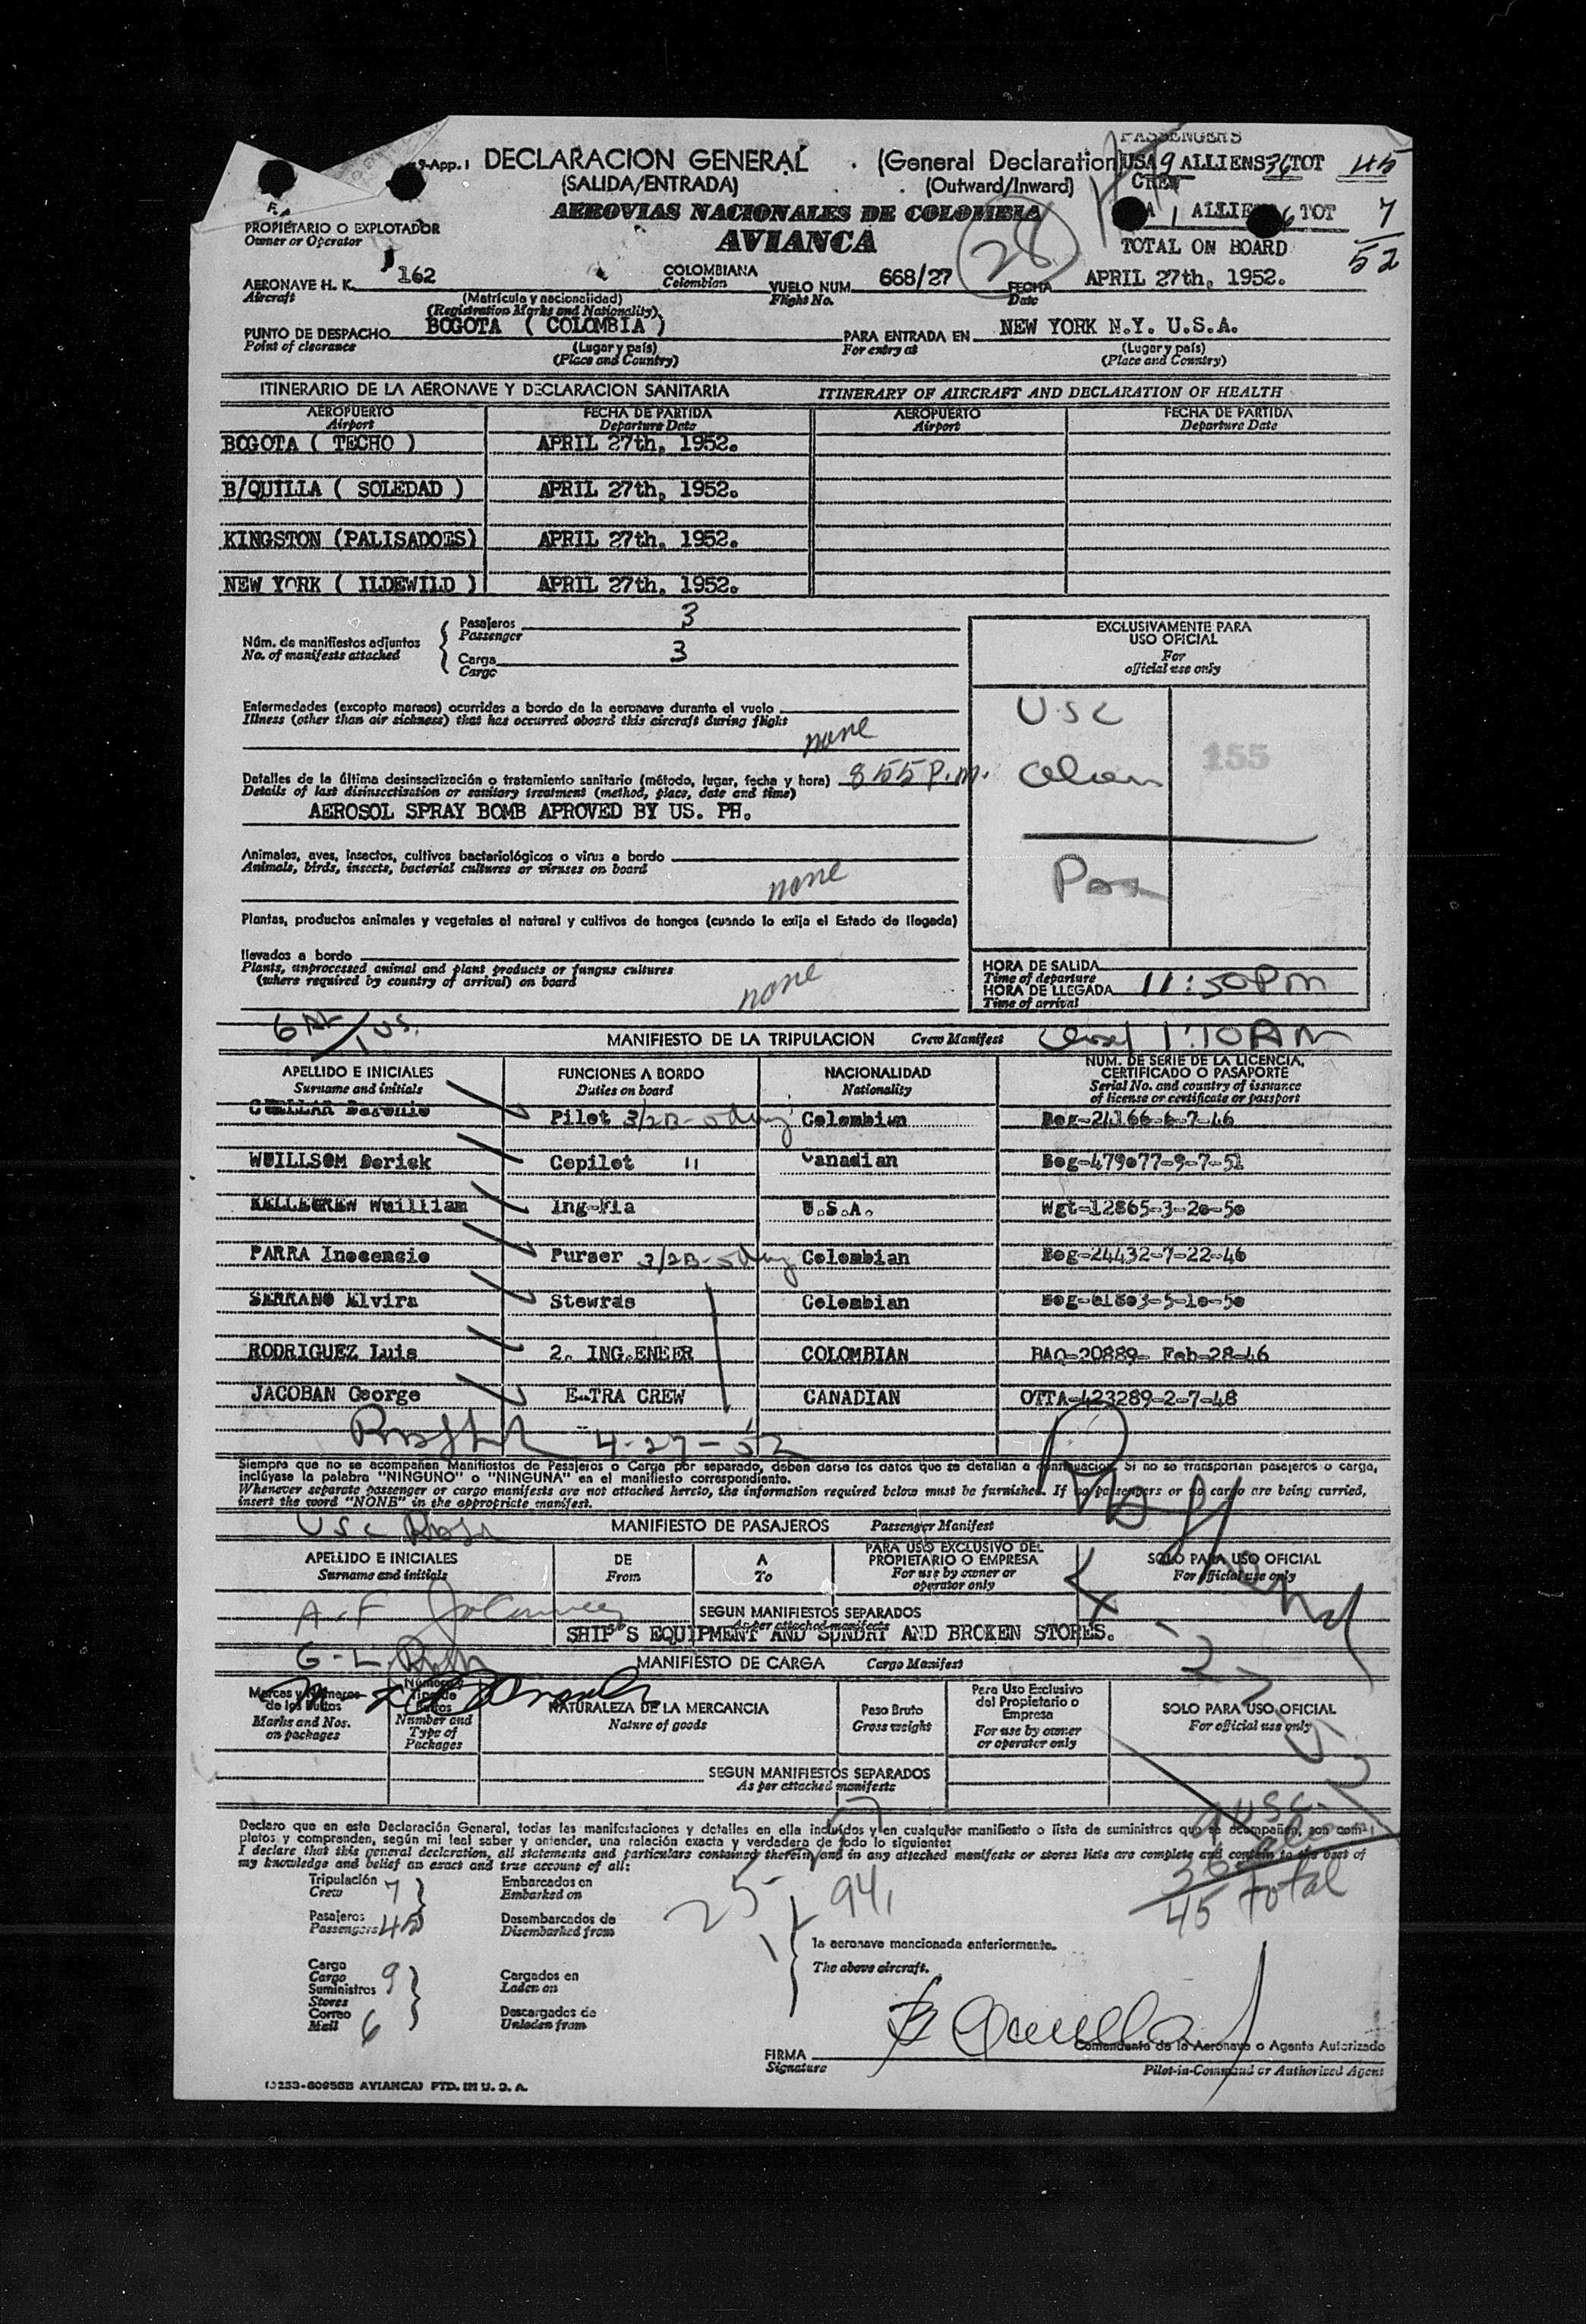 PASSENGERS
9-App. 1 DECLARACION GENERAL (General Declaration) USA 9 ALLIENS 36 TOT 45
(SALIDA/ENTRADA) (Outward/Inward) CREW
AEROVIAS NACIONALES DE COLOMBIA
A 1 ALLIE 6 TOT 7
PROPIETARIO O EXPLOTADOR
Owner or Operator
AVIANCA
28
TOTAL ON BOARD 52
AERONAVE H. K. 162 COLOMBIANA VUELO NUM. 668/27 FECHA APRIL 27th, 1952.
Aircraft Colombian Flight No. Date
(Matrícula y nacionalidad)
(Registration Marks and Nationality)
PUNTO DE DESPACHO BOGOTA ( COLOMBIA ) PARA ENTRADA EN NEW YORK N.Y. U.S.A.
Point of clearance (Lugar y país) For entry at (Lugar y país)
(Place and Country) (Place and Country)
ITINERARIO DE LA AERONAVE Y DECLARACION SANITARIA ITINERARY OF AIRCRAFT AND DECLARATION OF HEALTH
AEROPUERTO FECHA DE PARTIDA AEROPUERTO FECHA DE PARTIDA
Airport Departure Date Airport Departure Date
BOGOTA ( TECHO ) APRIL 27th, 1952.
B/QUILLA ( SOLEDAD ) APRIL 27th, 1952.
KINGSTON (PALISADOES) APRIL 27th, 1952.
NEW YORK ( ILDEWILD ) APRIL 27th, 1952.
Núm. de manifiestos adjuntos
No. of manifests attached
Pasajeros 3
Passenger
Carga 3
Cargo
EXCLUSIVAMENTE PARA
USO OFICIAL
For
official use only
USC
155
Alien
Pax
Enfermedades (excepto mareos) ocurridas a bordo de la aeronave durante el vuelo
Illness (other than air sickness) that has occurred aboard this aircraft during flight
none
Detalles de la última desinsectización o tratamiento sanitario (método, lugar, fecha y hora) 855 P.M.
Details of last disinsectization or sanitary treatment (method, place, date and time)
AEROSOL SPRAY BOMB APROVED BY US. PH.
Animales, aves, insectos, cultivos bacteriológicos o virus a bordo
Animals, birds, insects, bacterial cultures or viruses on board
none
Plantas, productos animales y vegetales al natural y cultivos de hongos (cuando lo exija el Estado de llegada)
llevados a bordo
Plants, unprocessed animal and plant products or fungus cultures
(where required by country of arrival) on board
none
HORA DE SALIDA
Time of departure
HORA DE LLEGADA 11:50PM
Time of arrival
MANIFIESTO DE LA TRIPULACION Crew Manifest 1:10 AM
APELLIDO E INICIALES FUNCIONES A BORDO NACIONALIDAD NUM. DE SERIE DE LA LICENCIA, CERTIFICADO O PASAPORTE
Surname and initials Duties on board Nationality Serial No. and country of issuance of license or certificate or passport
CUELLAR Pilot Colombian Bog-24166-6-7-46
WUILLSOM Derick Copilot " Canadian Bog-479077-9-7-51
KELLEGREW Wuilliam Ing-Fla U.S.A. Wgt-12865-3-20-50
PARRA Inocencio Purser Colombian Bog-24432-7-22-46
SERRANO Elvira Stewras Colombian Bog-61803-5-10-50
RODRIGUEZ Luis 2. ING.ENEER COLOMBIAN BAQ-20889- Feb-28-46
JACOBAN George E-TRA CREW CANADIAN OTTA-423289-2-7-48
4-27-52
Siempre que no se acompañen Manifiestos de Pasajeros o Carga por separado, deben darse los datos que se detallan a continuación. Si no se transportan pasajeros o carga,
inclúyase la palabra "NINGUNO" o "NINGUNA" en el manifiesto correspondiente.
Whenever separate passenger or cargo manifests are not attached hereto, the information required below must be furnished. If no passengers or no cargo are being carried,
insert the word "NONE" in the appropriate manifest.
USC MANIFIESTO DE PASAJEROS Passenger Manifest
APELLIDO E INICIALES DE A PARA USO EXCLUSIVO DEL PROPIETARIO O EMPRESA SOLO PARA USO OFICIAL
Surname and initials From To For use by owner or operator only For official use only
SEGUN MANIFIESTOS SEPARADOS
As per attached manifests
SHIP'S EQUIPMENT AND SUNDRY AND BROKEN STORES.
MANIFIESTO DE CARGA Cargo Manifest
Marcas y Números de los Bultos
Marks and Nos. on packages
Number and Type of Packages
NATURALEZA DE LA MERCANCIA
Nature of goods
Peso Bruto
Gross weight
Para Uso Exclusivo del Propietario o Empresa
For use by owner or operator only
SOLO PARA USO OFICIAL
For official use only
SEGUN MANIFIESTOS SEPARADOS
As per attached manifests
Declaro que en esta Declaración General, todas las manifestaciones y detalles en ella incluídos y en cualquier manifiesto o lista de suministros que se acompañen, son com-
pletos y comprenden, según mi leal saber y entender, una relación exacta y verdadera de todo lo siguiente:
I declare that this general declaration, all statements and particulars contained therein and in any attached manifests or stores lists are complete and contain to the best of
my knowledge and belief an exact and true account of all:
9 USC
36
45 total
Tripulación 7 Embarcados en
Crew Embarked on
Pasajeros 45 Desembarcados de
Passengers Disembarked from
25 94
la aeronave mencionada anteriormente.
The above aircraft.
Cargo 9 Cargados en
Cargo Laden on
Suministros
Stores
Correo 6 Descargados de
Mail Unladen from
FIRMA Comandante de la Aeronave o Agente Autorizado
Signature Pilot-in-Command or Authorized Agent
(3253-60955B AVIANCA) PTD. IN U. S. A.